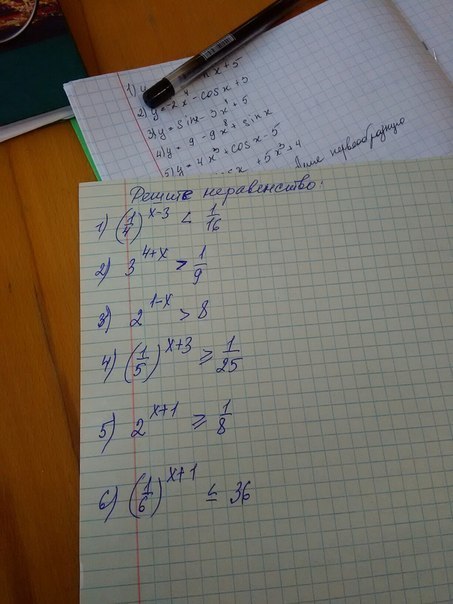 2) y = 2x - cos x + 5
3) y = sin x - 3x + 5
4) y = 9 - 9x⁸ + sin x
5) y = 4x³ + cos x - 5
+ 5x³ + 4
первообразную
Решите неравенство:
1) (1/4)^(x-3) < 1/16
2) 3^(4+x) > 1/9
3) 2^(1-x) > 8
4) (1/5)^(x+3) ≥ 1/25
5) 2^(x+1) ≥ 1/8
6) (1/6)^(x+1) ≤ 36